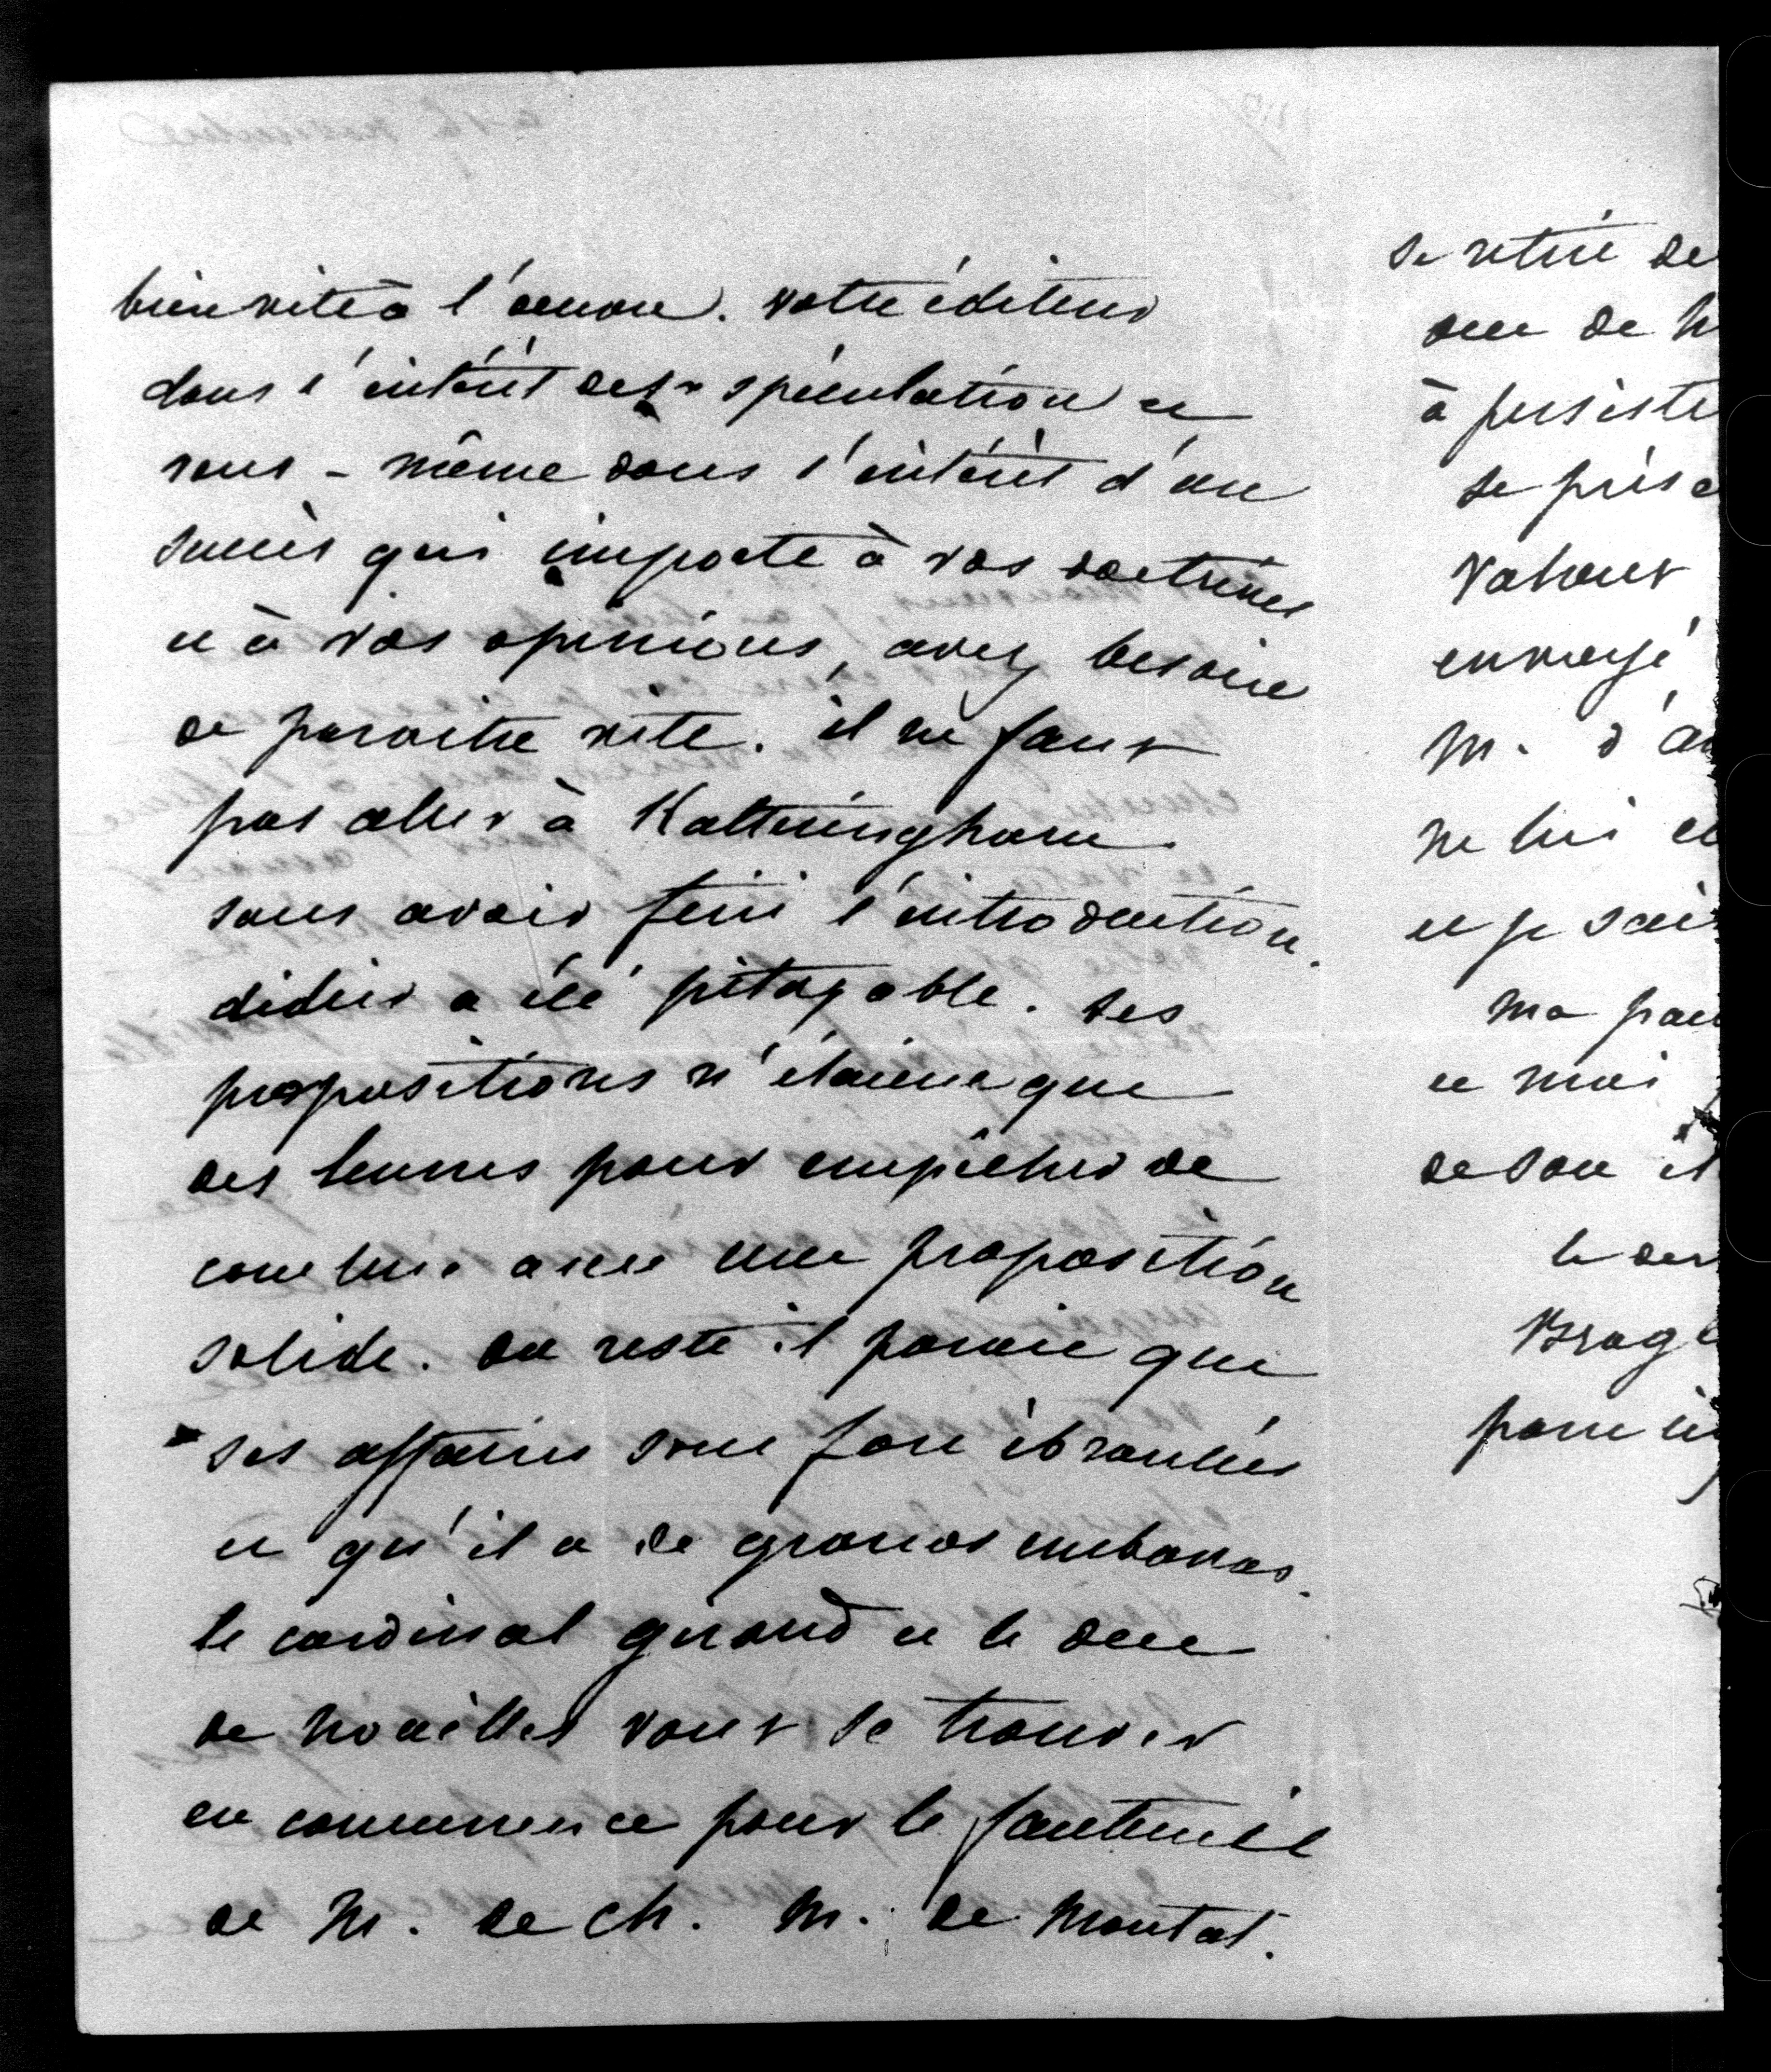 bien vite à l'œuvre. votre éditeur
dans l'intérêt de sa spéculation et
vous-même dans l'intérêt d'un
succès qui importe à vos doctrines
et à vos opinions, avez besoin
de paroitre vite. il ne faut
pas aller à Ketteringham
sans avoir fini l'introduction.
didier a été pitoyable. ses
propositions n'étaient que
des leurres pour empêcher de
conclure avec une proposition
solide. du reste il parait que
ses affaires sont fort ébranlées
et qu'il a de grands embarras.
le cardinal giraud et le duc
de Noailles vont se trouver
en concurrence pour le fauteuil
de M. de Ch. M. de Montal.
se retire de
duc de N
à persiste
se prése
Vatout
envoyé
M. d'
ne lui
et je sais
ma
et moi
de son
le
Brogl
pour